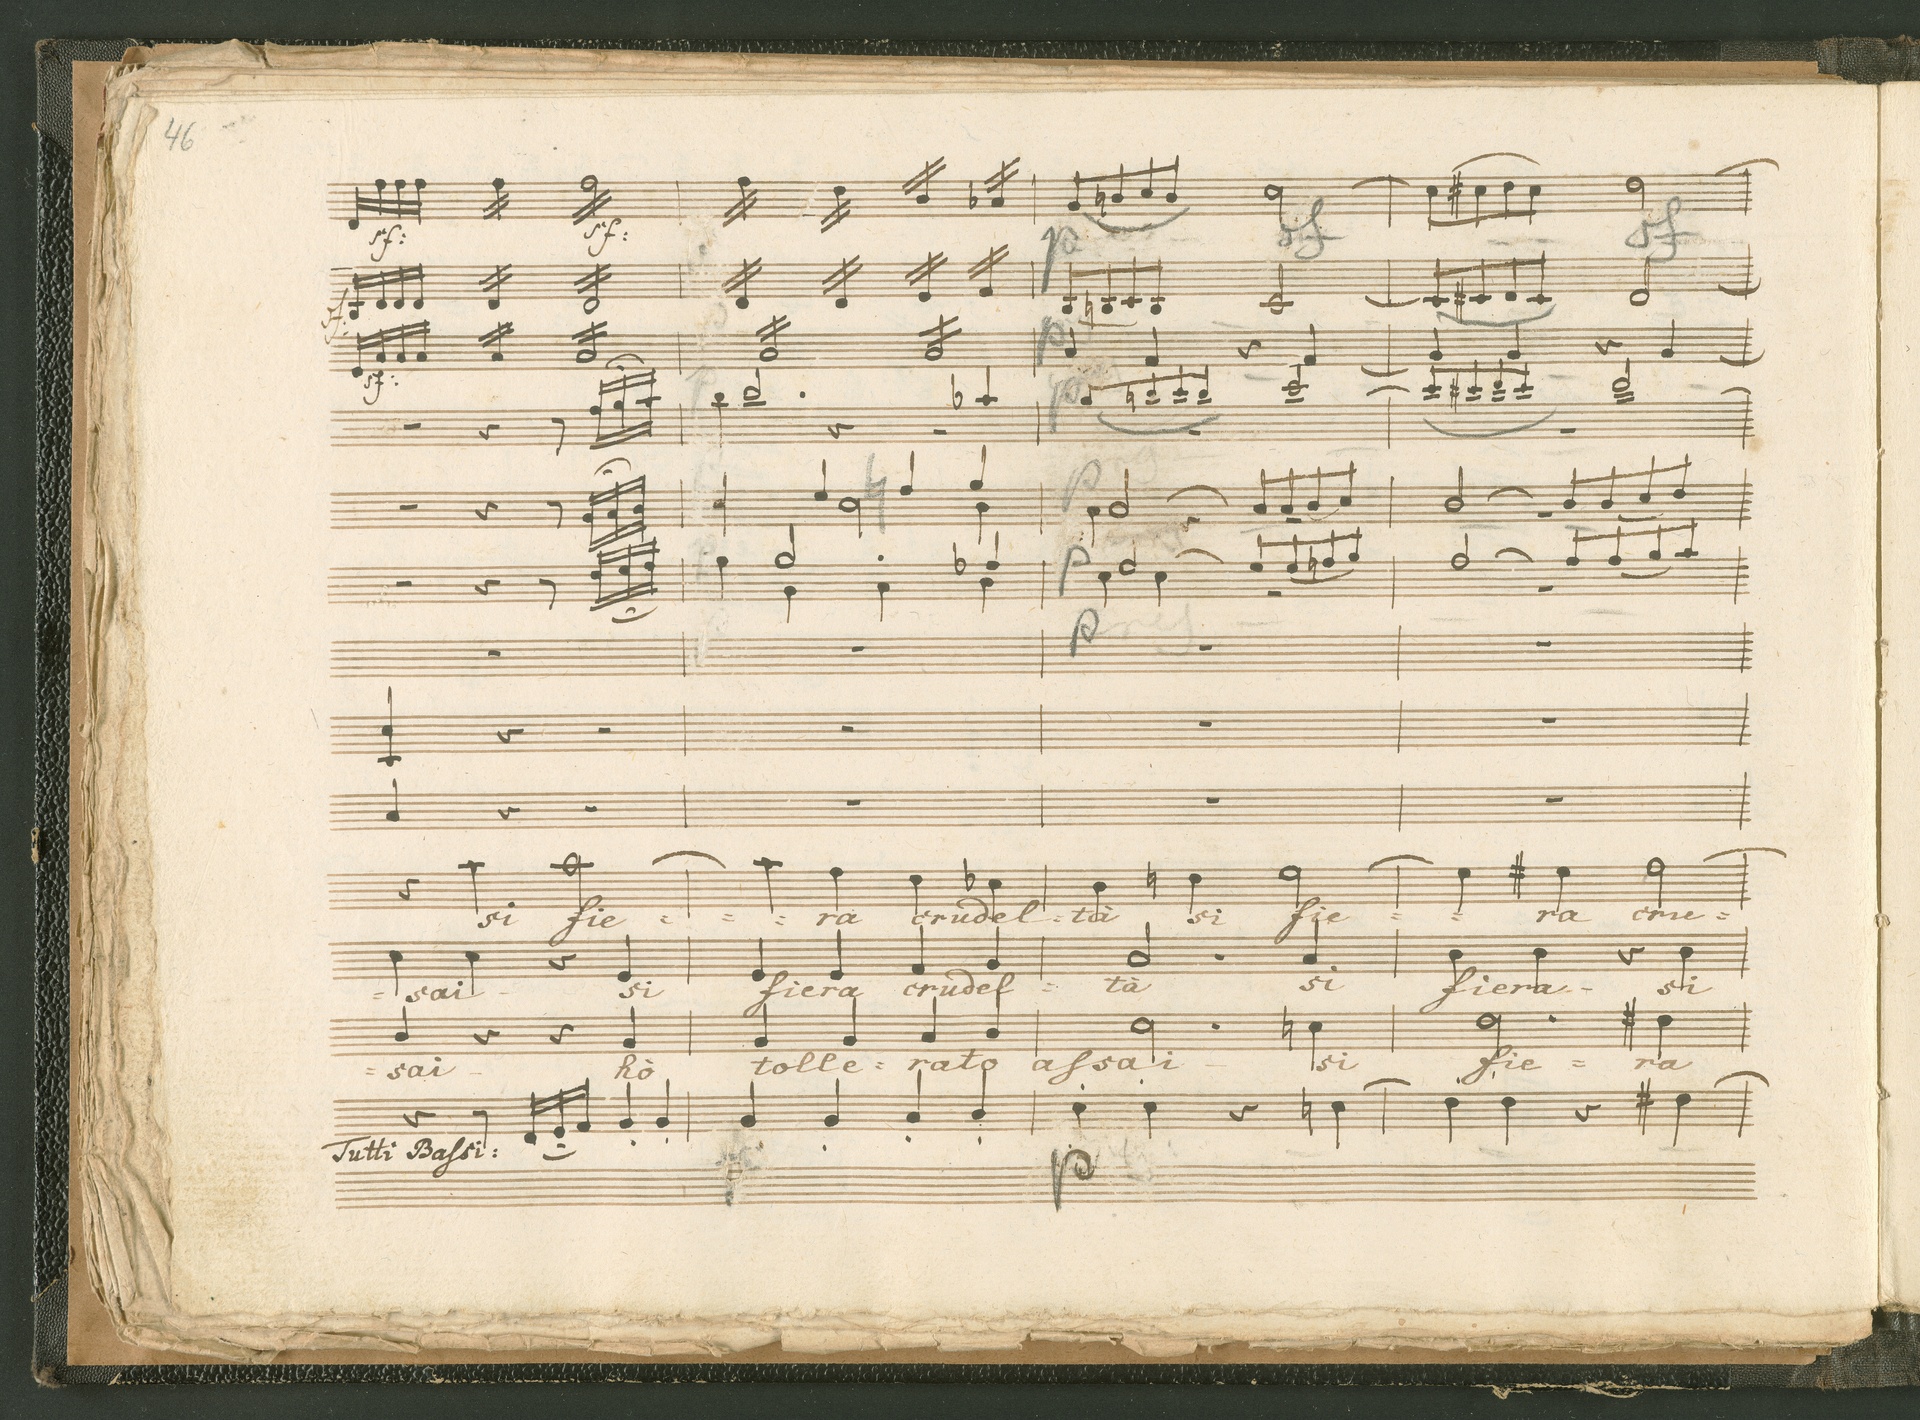 46
sf: sf:
p sf sf
sf:
p
sf:
p
p
p
p
si fie = = = ra crudel = tà si fie = = ra cru =
= sai - si fiera crudel = tà si fiera - si
= sai - hò tolle = rato assai - si fie = ra
Tutti Bassi:
p p